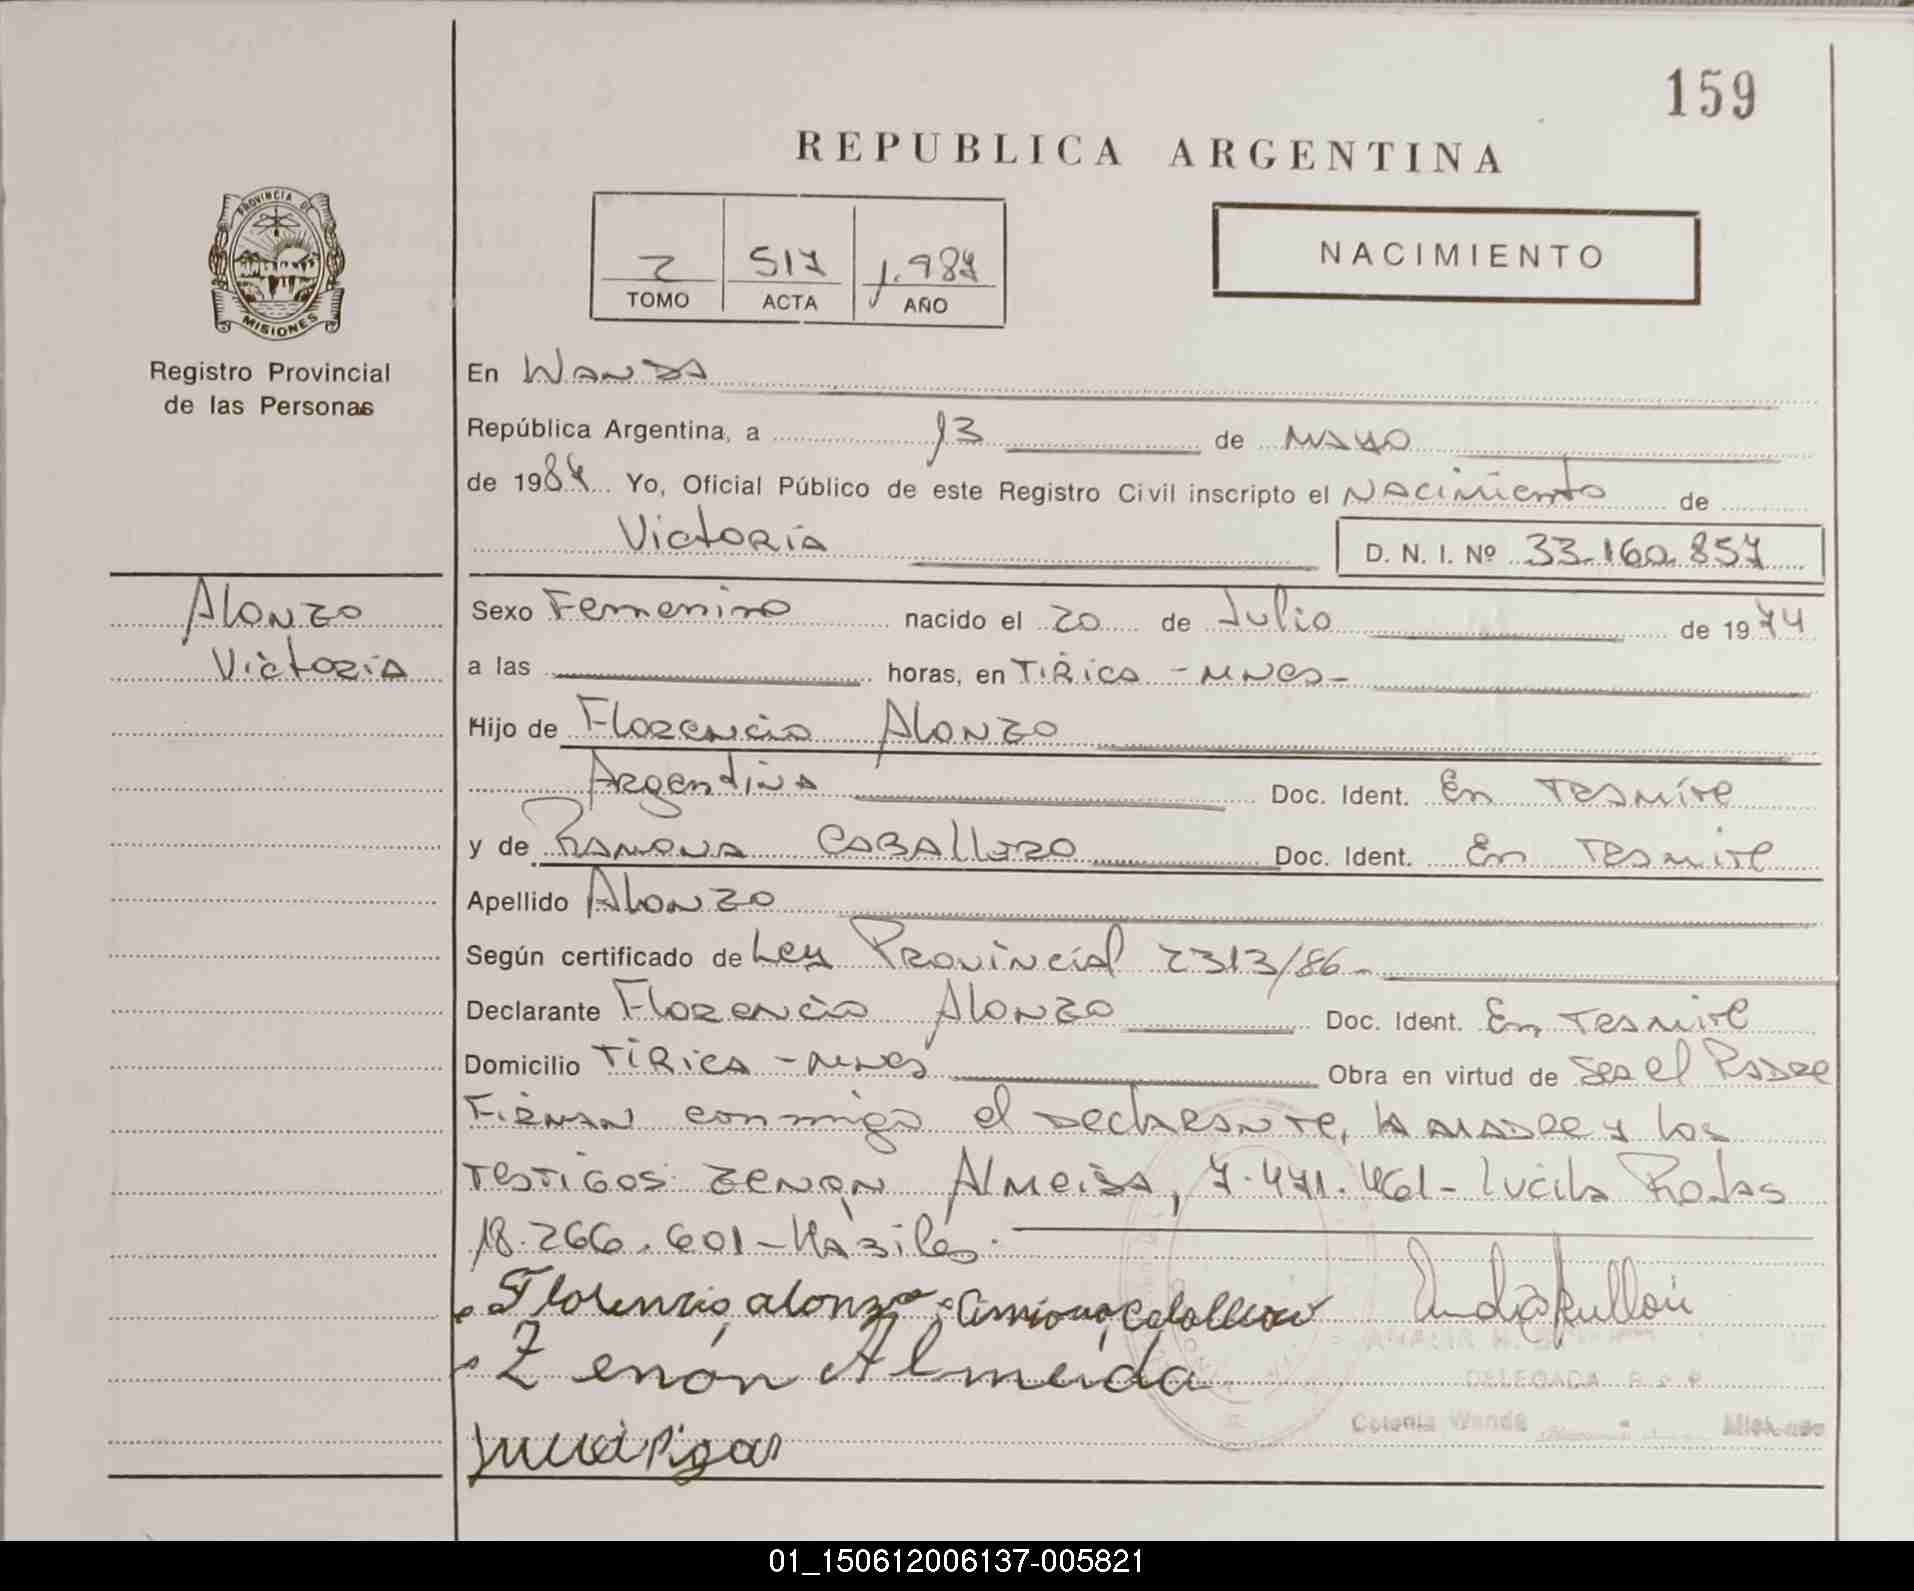 159
REPUBLICA ARGENTINA
PROVINCIA DE
MISIONES
Registro Provincial
de las Personas
2 517 1.987
TOMO ACTA AÑO
NACIMIENTO
En Wanda
República Argentina, a 13 de Mayo
de 1987 Yo, Oficial Público de este Registro Civil inscripto el Nacimiento de
Victoria D. N. I. Nº 33.160.857
Alonzo
Victoria
Sexo Femenino nacido el 20 de Julio de 1974
a las horas, en Tirica - Mnes -
Hijo de Florencio Alonzo
Argentina Doc. Ident. En Tramite
y de Ramona Caballero Doc. Ident. En Tramite
Apellido Alonzo
Según certificado de Ley Provincial 2313/86 -
Declarante Florencio Alonzo Doc. Ident. En Tramite
Domicilio Tirica - Mnes Obra en virtud de Ser el Padre
Firman conmigo el declarante, la madre y los
testigos: Zenon Almeida, 7.471.461 - Lucila Rojas
18.266.601 - Habiles.
Florencio alonzo
Zenón Almeida
DELEGADA
Colonia Wanda Misiones
01_150612006137-005821